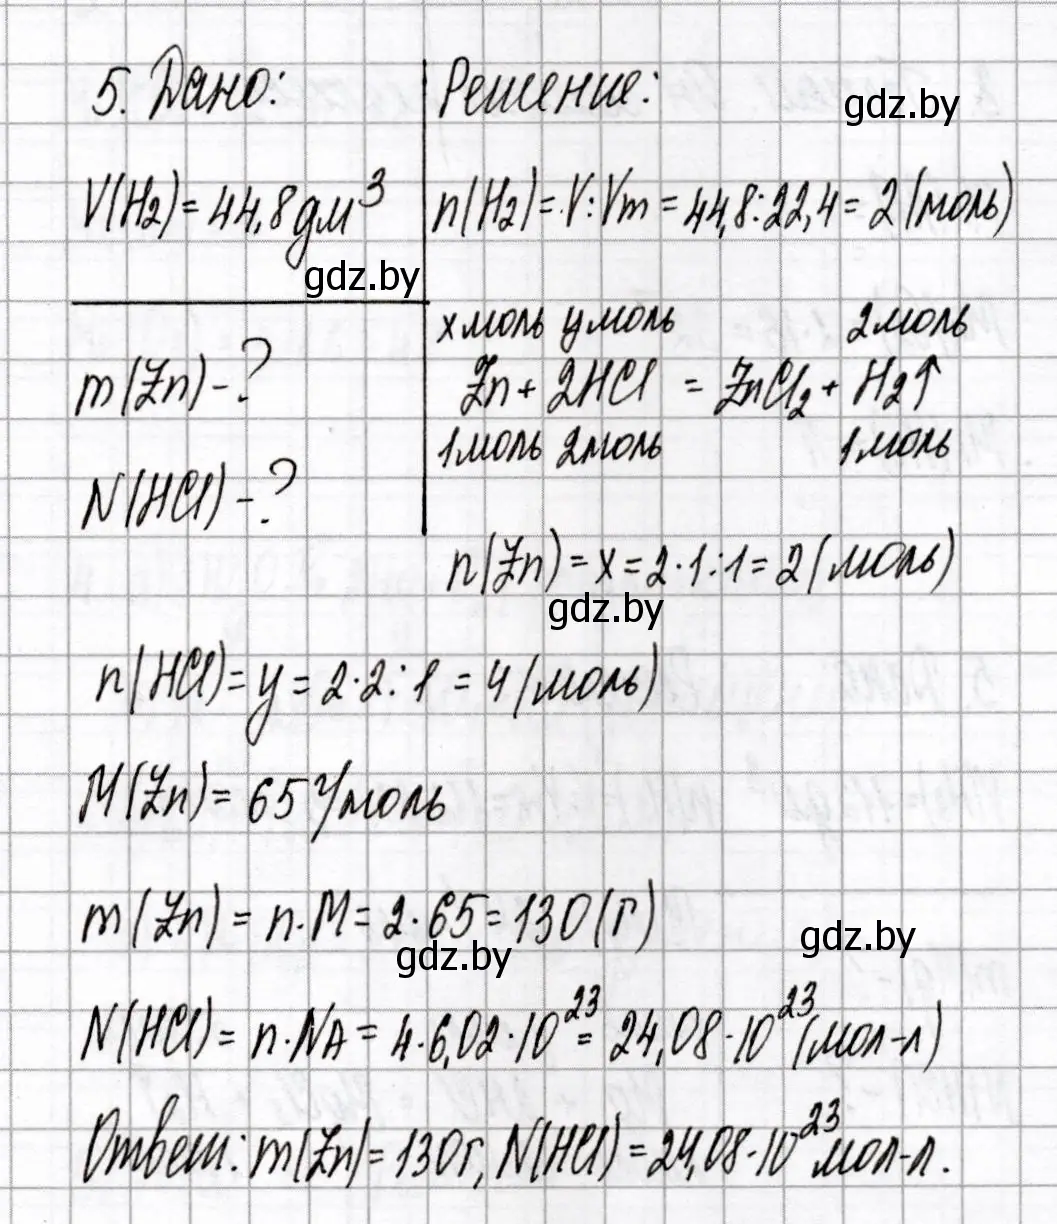 5. Дано:
V(H₂) = 44,8 дм³
m(Zn) - ?
N(HCl) - ?
Решение:
gdz.by
n(H₂) = V : Vm = 44,8 : 22,4 = 2 (моль)
gdz.by
x моль y моль 2 моль
Zn + 2HCl = ZnCl₂ + H₂↑
1 моль 2 моль 1 моль
n(Zn) = x = 2 · 1 : 1 = 2 (моль)
gdz.by
n(HCl) = y = 2 · 2 : 1 = 4 (моль)
M(Zn) = 65 г/моль
m(Zn) = n · M = 2 · 65 = 130 (г)
gdz.by
gdz.by
N(HCl) = n · NA = 4 · 6,02 · 10²³ = 24,08 · 10²³ (мол-л)
Ответ: m(Zn) = 130 г, N(HCl) = 24,08 · 10²³ мол-л.